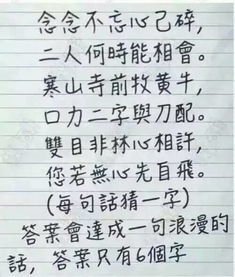 念念不忘心己碎,
二人何時能相會。
寒山寺前牧黄牛,
口力二字與刀配。
雙目非林心相許,
您若無心先自飛。
(每句話猜一字)
答案會達成一句浪漫的
話, 答案只有6個字